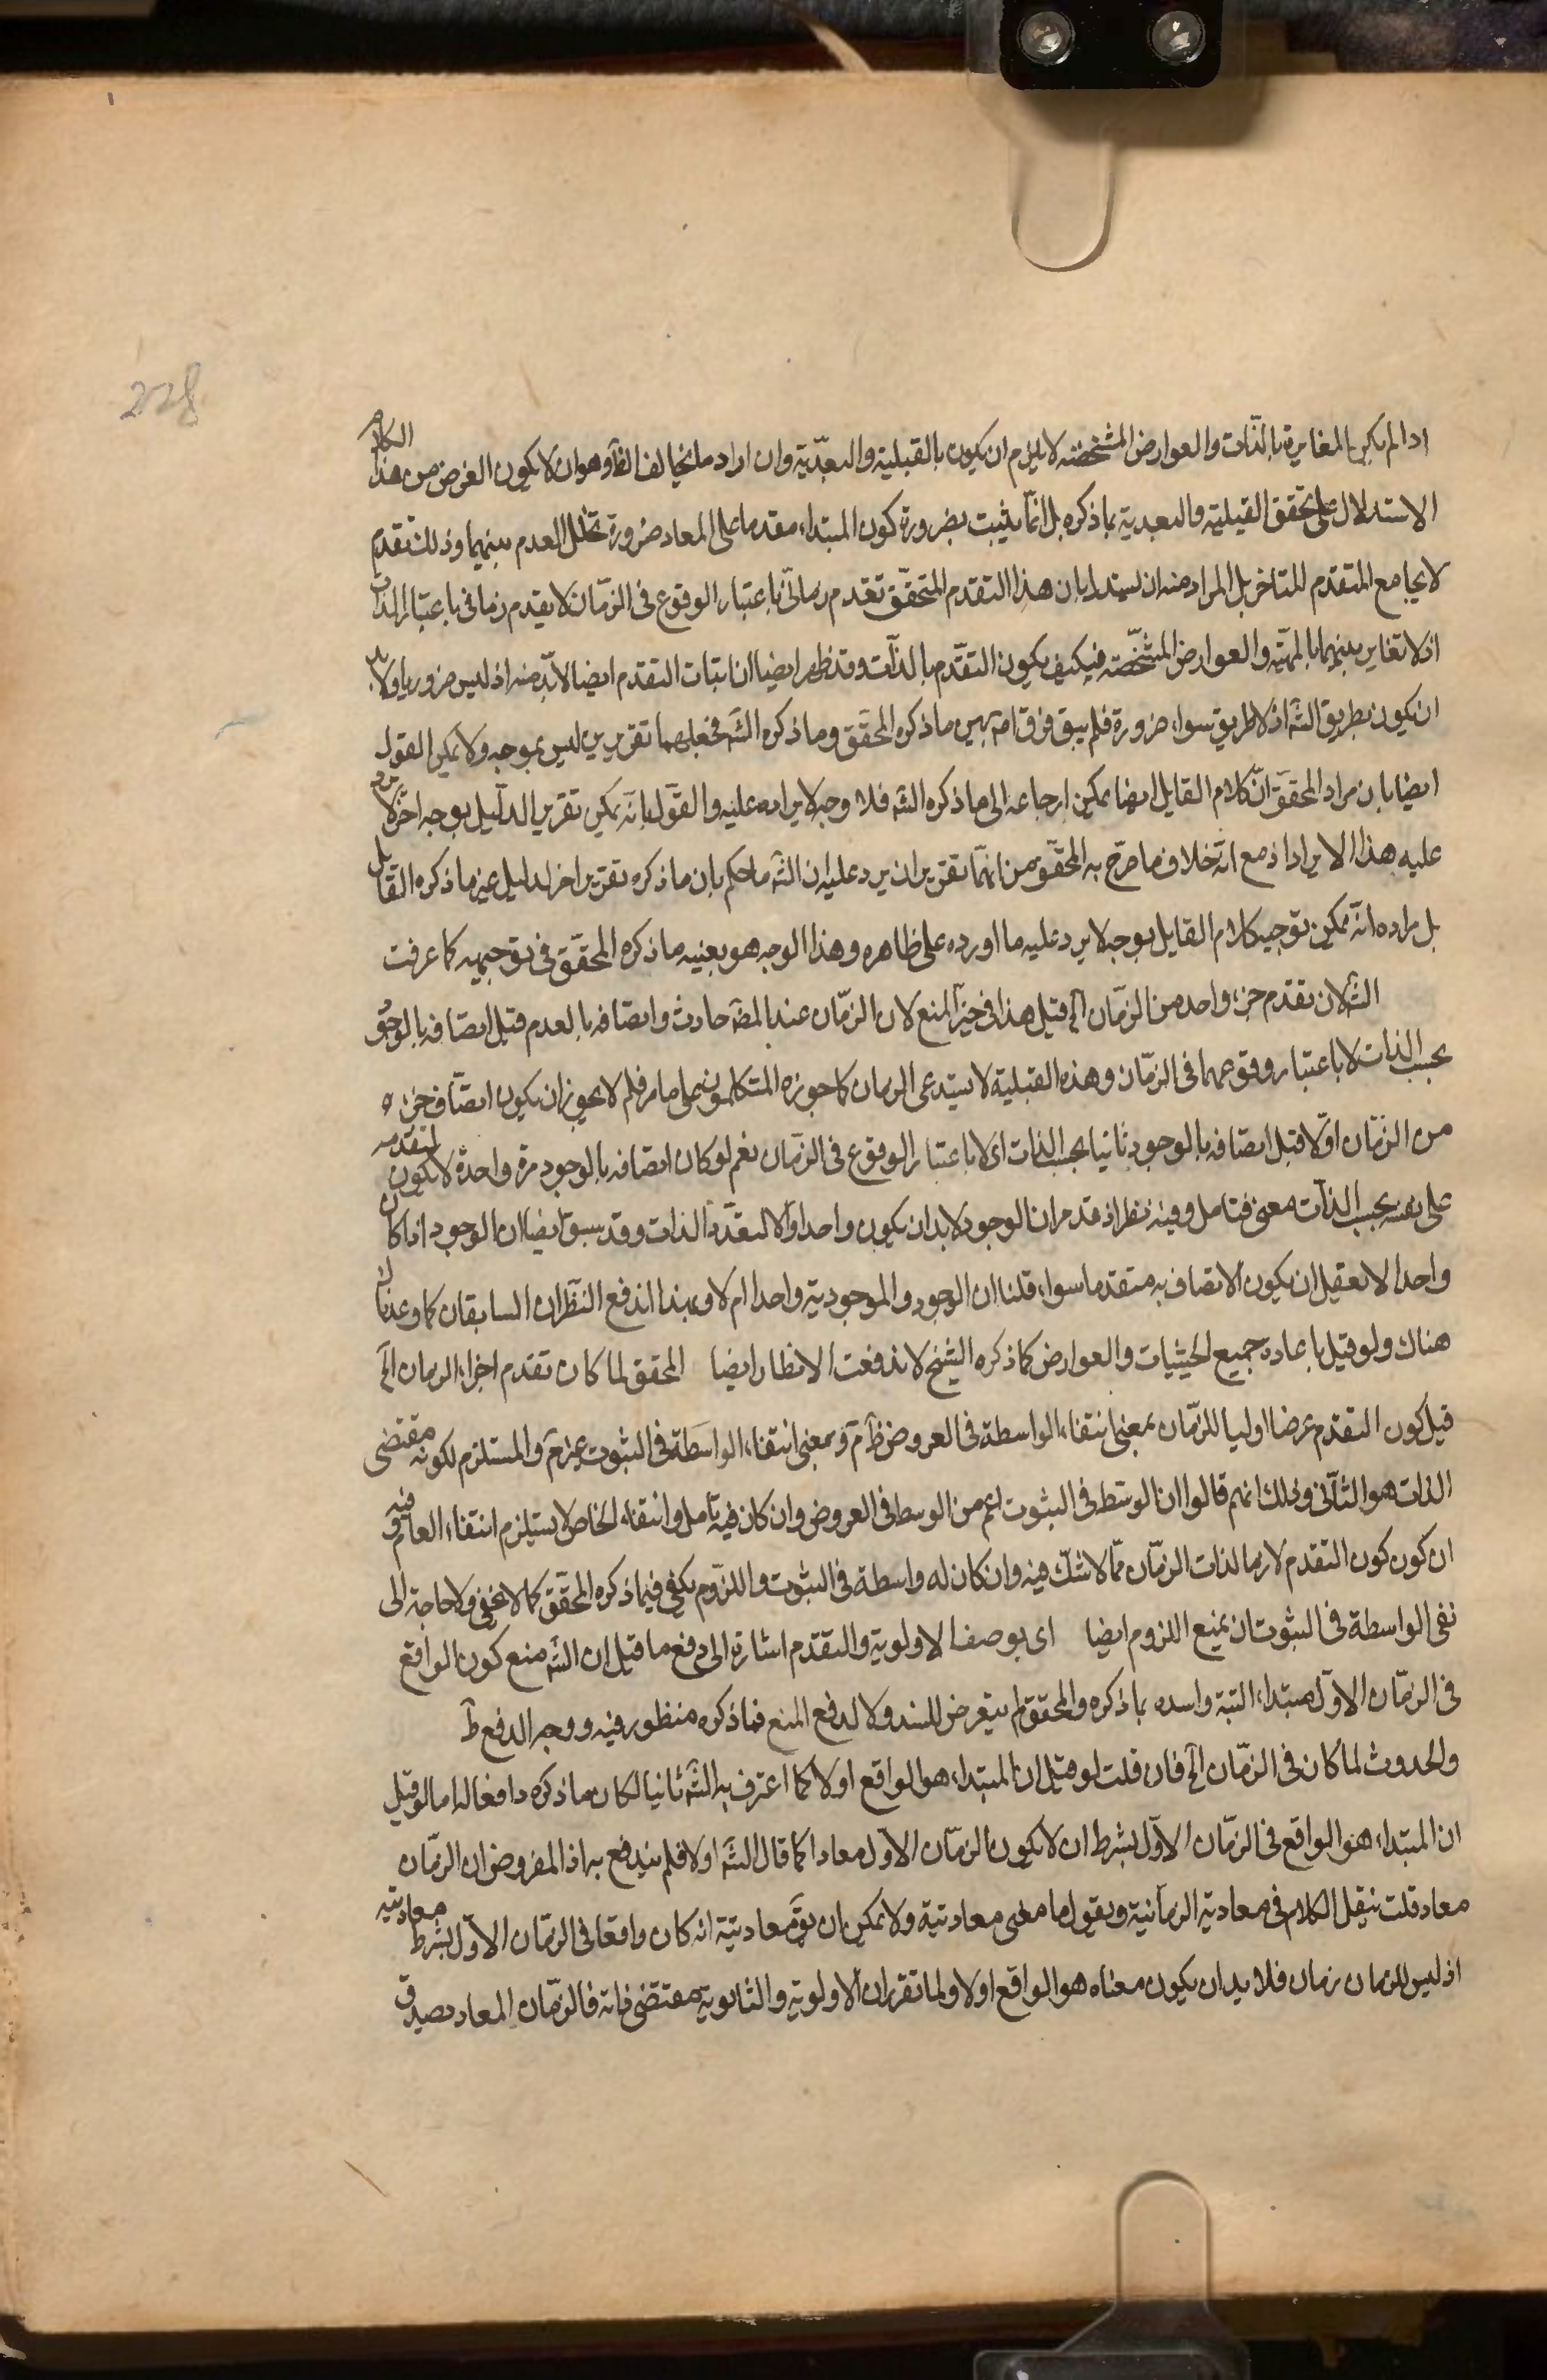 228
اذا لم يكن المغايرة بالذات والعوارض المشخصة لا يلزم ان يكون بالقبلية والبعدية وان اراد ما يخالف الظ وهو ان لا يكون الغرض من هذا الكلام
الاستدلال على تحقق القبلية والبعدية بما ذكره بل انما يثبت بضرورة كون المبتداء مقدما على المعاد ضرورة تخلل العدم بينهما وذلك تقدم
لا يجامع المتقدم للمتاخر بل المراد منه ان يستدل بان هذا التقدم المتحقق تقدم زمانى باعتبار الوقوع فى الزمان لا تقدم زمانى باعتبار الذات
اذ لا تغاير بينهما بالمهية والعوارض المشخصة فكيف يكون التقدم بالذات وقد ظهر ايضا ان اثبات التقدم ايضا لا بد منه اذ ليس ضروريا ولا بد
ان يكون بطريق الشه اذ لا طريق سواه ضرورة فلم يبق فرق اصلا بين ما ذكره المحقق وما ذكره الشه فجعلهما تقريرين ليس بموجه ولا يمكن القول
ايضا بان مراد المحقق ان كلام القايل ايضا يمكن ارجاعه الى ما ذكره الشه فلا وجه لايراده عليه والقول بانه يمكن تقرير الدليل بوجه اخر لا يرد
عليه هذا الايراد اذ مع انه خلاف ما صرح به المحقق من انهما تقريران يرد عليه ان الشه ما حكم بان ما ذكره تقرير اخر لدليل غير ما ذكره القايل
بل مراده انه يمكن توجيه كلام القايل بوجه لا يرد عليه ما اورده على ظاهره وهذا الوجه هو بعينه ما ذكره المحقق فى توجيهه كما عرفت
الشه لان تقدم جزء واحد من الزمان الخ قيل هذا فى حيز المنع لان الزمان عند المصه حادث واتصافه بالعدم قبل اتصافه بالوجود
بحسب الذات لا باعتبار وقوعهما فى الزمان وهذه القبلية لا يستدعى الزمان كما جوزه المتكلمون على ما مر فلم لا يجوز ان يكون اتصاف جزء
من الزمان اولا قبل اتصافه بالوجود ثانيا بحسب الذات اى لا باعتبار الوقوع فى الزمان نعم لو كان اتصافه بالوجود مرة واحدة لا يكون لتقدمه
على نفسه بحسب الذات معنى فتامل وفيه نظر اذ قد مر ان الوجود لا بد ان يكون واحدا والا لتعدد الذات وقد سبق ايضا ان الوجود اذا كان
واحدا لا نعقل ان يكون الاتصاف به متقدما سواء قلنا ان الوجود والموجودية واحدا ام لا وبهذا اندفع النظران السابقان كما وعدناك
هناك ولو قيل باعادة جميع الحيثيات والعوارض كما ذكره الشيخ لاندفعت الانظار ايضا المحقق لما كان تقدم اجزاء الزمان الخ
قيل كون التقدم عرضا اوليا للزمان بمعنى انتفاء الواسطة فى العروض ظ م وبمعنى انتفاء الواسطة فى الثبوت غير م والمستلزم لكونه مقتضى
الذات هو الثانى وذلك انهم قالوا ان الوسط فى الثبوت اعم من الوسط فى العروض وان كان فيه تامل وانتفاء الخاص لا يستلزم انتفاء العام وفيه
ان كون كون التقدم لازما لذات الزمان مما لا شك فيه وان كان له واسطة فى الثبوت واللزوم يكفى فيما ذكره المحقق كما لا يخفى ولا حاجة الى
نفى الواسطة فى الثبوت ان يمنع اللزوم ايضا اى بوصف الاولوية والتقدم اشارة الى دفع ما قيل ان الشه منع كون الواقع
فى الزمان الاول مبتداء البتة واسنده بما ذكره والمحقق لم يتعرض للسند ولا لدفع المنع فما ذكره منظور فيه ووجه الدفع ظ
والحدوث لما كان فى الزمان الخ فان قلت لو قيل ان المبتداء هو الواقع اولا كما اعترف به الشه ثانيا لكان ما ذكره دافعا له اما لو قيل
ان المبتداء هو الواقع فى الزمان الاول بشرط ان لا يكون الزمان الاول معادا كما قال الشه اولا فلم يندفع به اذ المفروض ان الزمان
معاد قلت ننقل الكلام فى معادية الزمانية ونقول ما معنى معاديته ولا يمكن ان يق معاديته انه كان واقعا فى الزمان الاول بشرط معاديته
اذ ليس للزمان زمان فلا بد ان يكون معناه هو الواقع اولا ولما تقرر ان الاولوية والثانوية مقتضى ذاته فالزمان المعاد يصدق